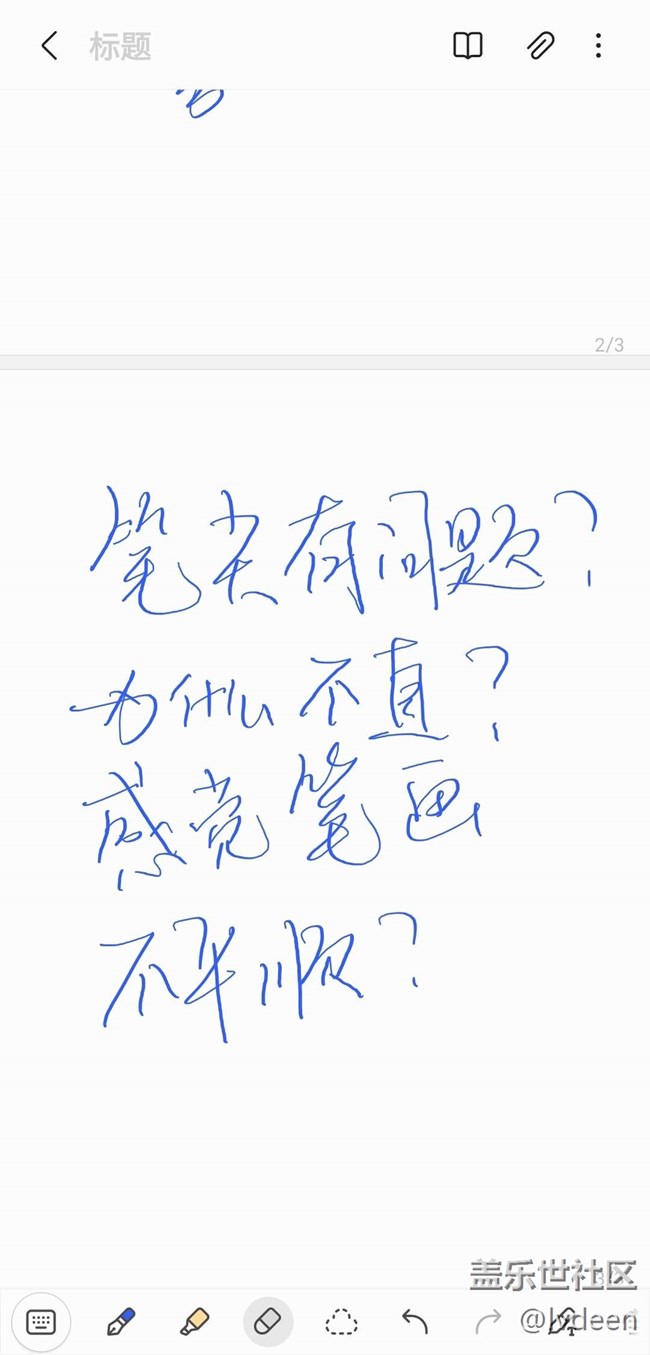 标题
2/3
笔尖有问题?
为什么不直?
感觉笔画
不平顺?
盖乐世社区
@lydeen